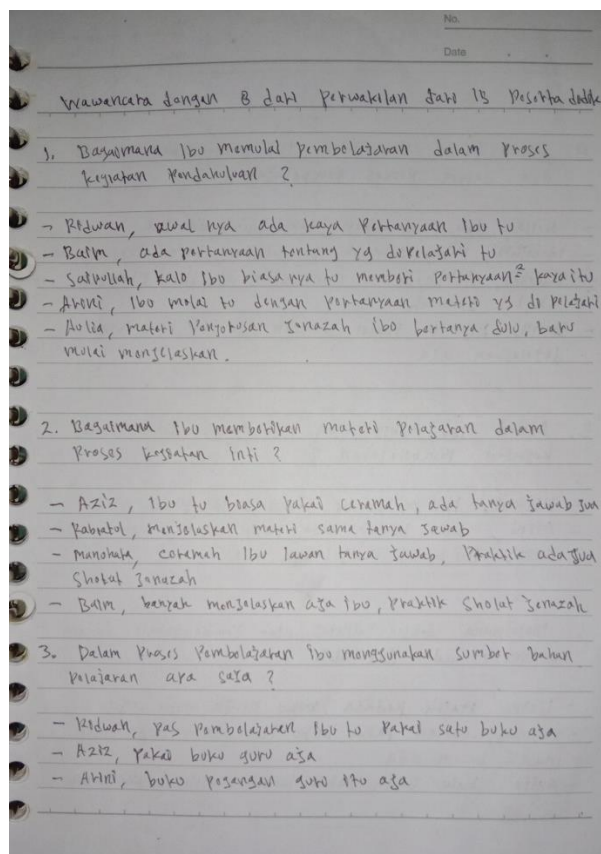 No.
Date
Wawancara dengan 8 dari perwakilan dari 15 Peserta didik
1. Bagaimana Ibu memulai pembelajaran dalam proses
kegiatan Pendahuluan ?
- Ridwan, awal nya ada kaya Pertanyaan Ibu tu
- Baim, ada pertanyaan tentang yg dipelajari tu
- Saifullah, kalo Ibu biasa nya tu memberi pertanyaan² kaya itu
- Arini, Ibu mulai tu dengan Pertanyaan materi yg di pelajari
- Aulia, materi Pengurusan Jenazah ibu bertanya dulu, baru
mulai menjelaskan.
2. Bagaimana Ibu memberikan materi Pelajaran dalam
Proses kegiatan inti ?
- Aziz, Ibu tu biasa pakai ceramah, ada tanya jawab jua
- Rabiatul, menjelaskan materi sama tanya jawab
- Manohara, ceramah Ibu lawan tanya jawab, Praktik ada jua
Sholat Jenazah
- Baim, banyak menjelaskan aja ibu, Praktik Sholat Jenazah
3. Dalam Proses Pembelajaran ibu menggunakan sumber bahan
Pelajaran apa saja ?
- Ridwan, pas Pembelajaran Ibu tu Pakai satu buku aja
- Aziz, Pakai buku guru aja
- Arini, buku pegangan guru itu aja